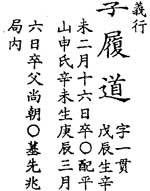 義行
履道
字一貫
戊辰生辛
未二月十六日卒〇配平
山申氏辛未生庚辰三月
六日卒父尚朝〇墓先兆
局內